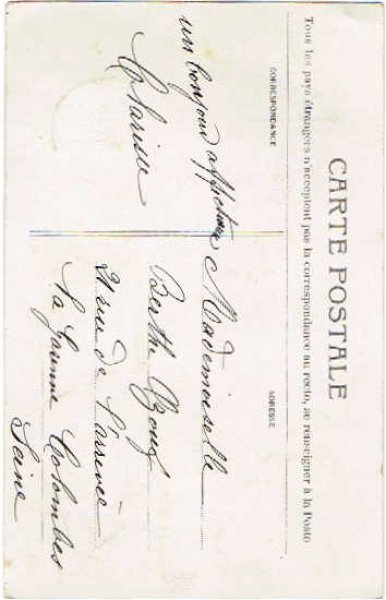 CARTE POSTALE
Tous les pays étrangers n'acceptent pas la correspondance au recto, se renseigner à la Poste
CORRESPONDANCE
ADRESSE
un bonjour affectueux
Clarisse
Mademoiselle
Berthe
21 rue de l'arrivée
La Garenne Colombes
Seine